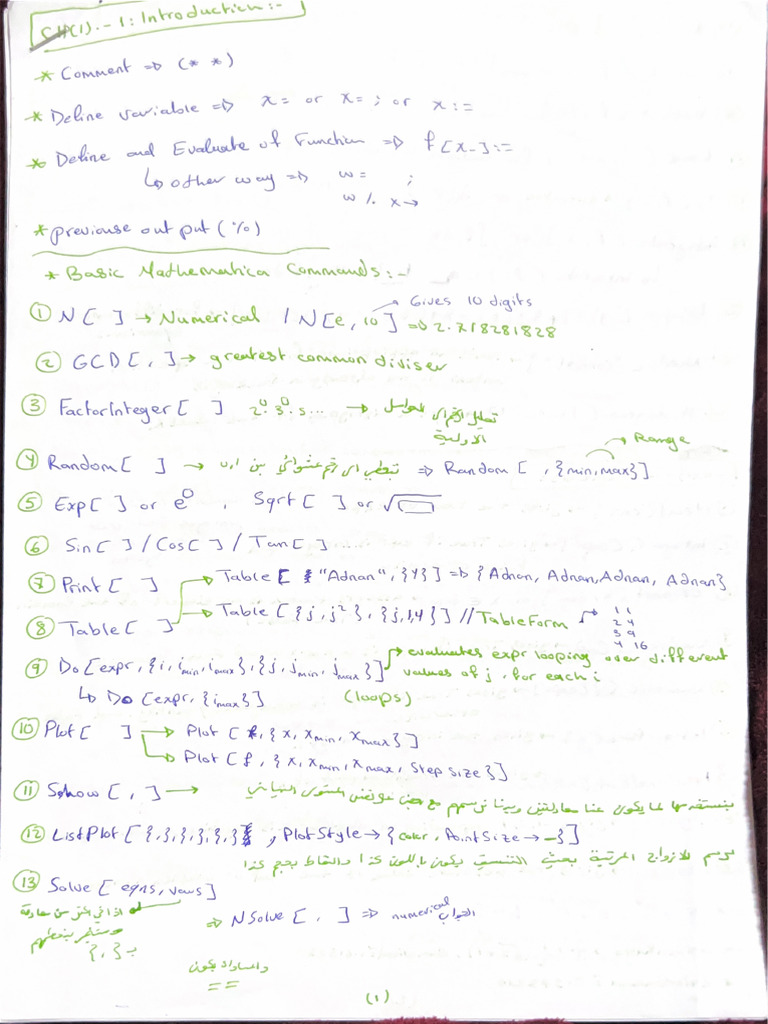 CH(1).- 1: Introduction:-
* Comment => (* *)
* Define variable => x= or x= ; or x:=
* Define and Evaluate of Function => f[x_]:=
↳ other way => w= ;
w /. x→
* previouse out put (%)
* Basic Mathematica Commands:-
① N[ ] → Numerical / N[e, 10] => 2.718281828
→ Gives 10 digits
② GCD[ , ] → greatest common diviser
③ FactorInteger[ ] 2^□. 3^□. 5... → تحليل الرقم الى العوامل
الاولية
④ Random[ ] → تعطي اي رقم عشوائي بين 0,1 => Random[ , {min,max}]
→ Range
⑤ Exp[ ] or e^□ , Sqrt[ ] or √□
⑥ Sin[ ] / Cos[ ] / Tan[ ]
⑦ Print[ ]
→ Table["Adnan", {4}] => {Adnan, Adnan, Adnan, Adnan}
⑧ Table[ ]
→ Table[{j, j²}, {j,1,4}] // TableForm →
1 1
2 4
3 9
4 16
⑨ Do[expr, {i, imin, imax}, {j, jmin, jmax}] → evaluates expr looping over different
values of j, for each i
↳ Do[expr, {imax}] (loops)
⑩ Plot[ ] → Plot[f, {x, xmin, xmax}]
→ Plot[f, {x, xmin, xmax, Step size}]
⑪ Show[ , ] → بنستخدمها لما يكون عنا معادلتين وبدنا نرسمهم مع بعض على نفس المستوى البياني
⑫ ListPlot[{ , }, { , }, { , }}, PlotStyle → {color, PointSize → _}]
يرسم الازواج المرتبة بحيث التنسيق يكون باللون كذا والنقاط بحجم كذا
⑬ Solve[eqns, vars]
اذا في اكثر من معادلة
بـ { , }
=> NSolve[ , ] => numerical الجواب
والمساواة بكون
==
(1)